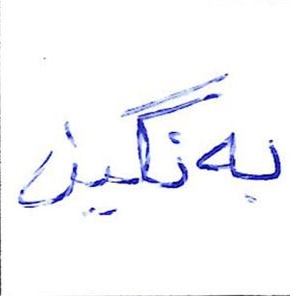 بەنگین